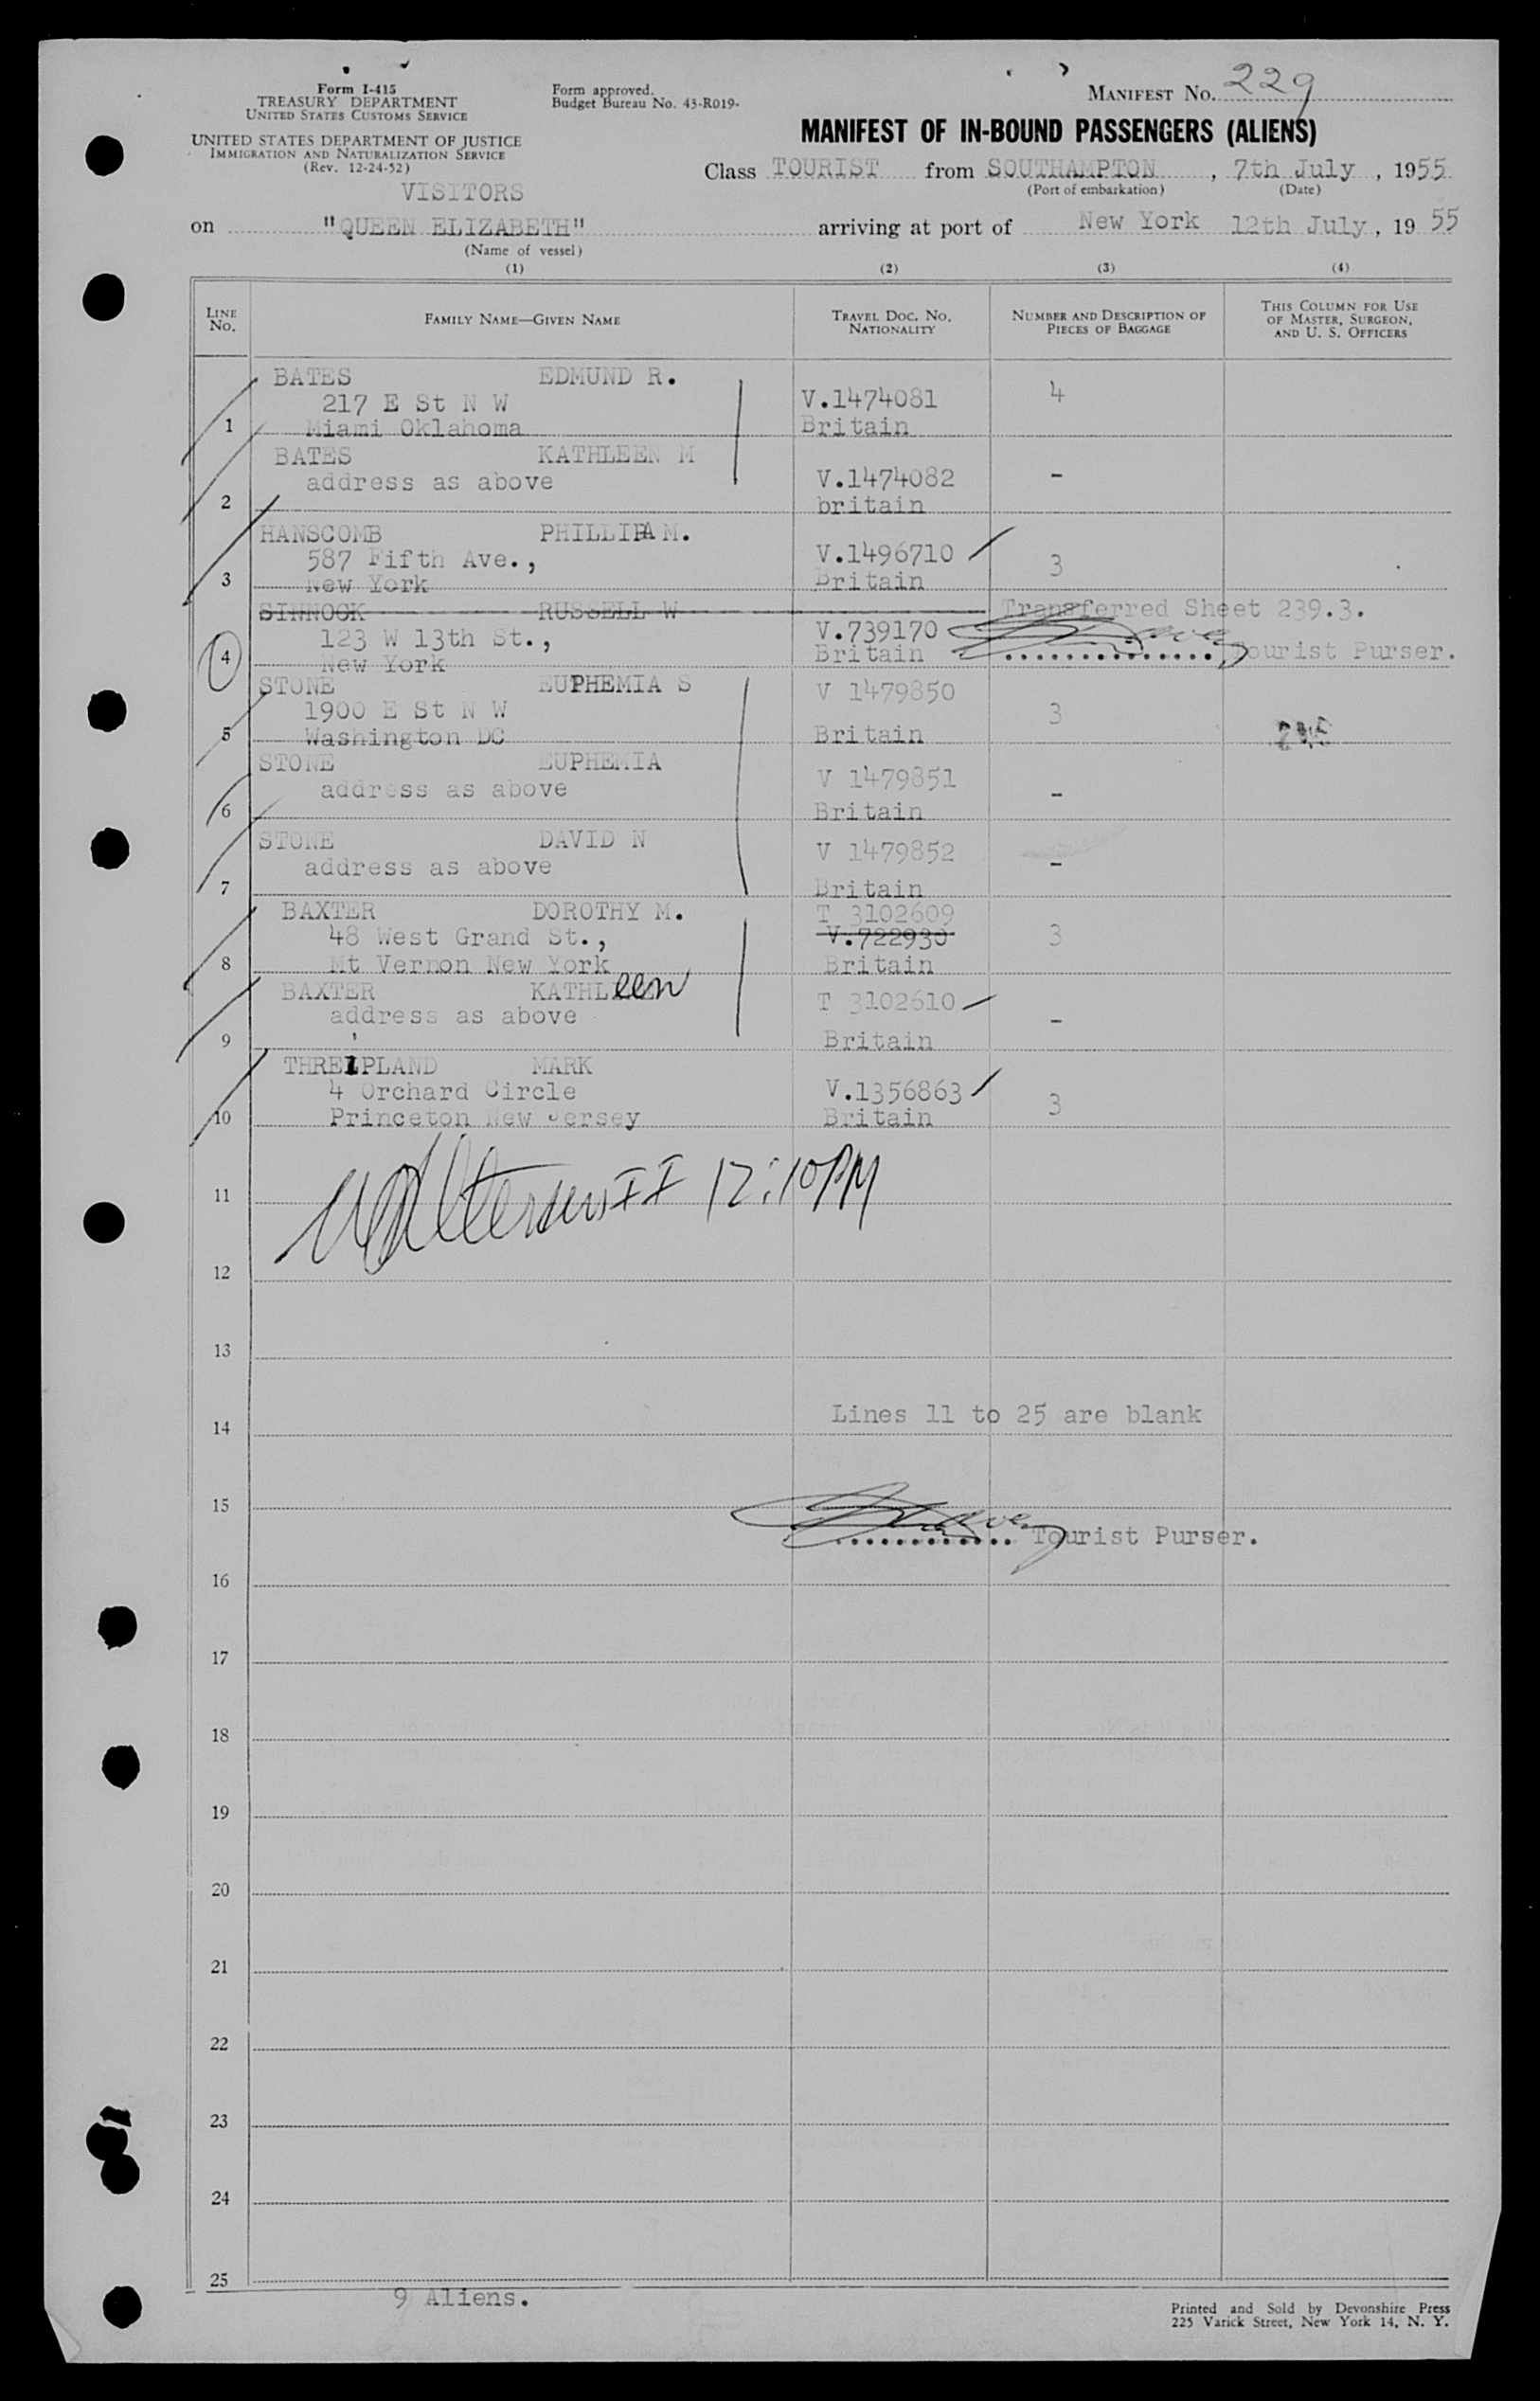 Form I-415
TREASURY DEPARTMENT
UNITED STATES CUSTOMS SERVICE
UNITED STATES DEPARTMENT OF JUSTICE
IMMIGRATION AND NATURALIZATION SERVICE
(Rev. 12-24-52)
Form approved.
Budget Bureau No. 43-R019-
MANIFEST NO. 229
MANIFEST OF IN-BOUND PASSENGERS (ALIENS)
Class TOURIST from SOUTHAMPTON, 7th July, 1955
(Port of embarkation) (Date)
VISITORS
on "QUEEN ELIZABETH" arriving at port of New York 12th July, 19 55
(Name of vessel)
(1) (2) (3) (4)
LINE NO. FAMILY NAME—GIVEN NAME TRAVEL DOC. NO. NATIONALITY NUMBER AND DESCRIPTION OF PIECES OF BAGGAGE THIS COLUMN FOR USE OF MASTER, SURGEON, AND U. S. OFFICERS
BATES EDMUND R.
217 E St N W V.1474081 4
1 Miami Oklahoma Britain
BATES KATHLEEN M
address as above V.1474082 -
2 britain
HANSCOMB PHILLIPA M.
587 Fifth Ave., V.1496710 3
3 New York Britain
SINNOCK RUSSELL W Transferred Sheet 239.3.
123 W 13th St., V.739170
4 New York Britain Tourist Purser.
STONE EUPHEMIA S V 1479850
1900 E St N W 3
5 Washington DC Britain
STONE EUPHEMIA V 1479851
address as above -
6 Britain
STONE DAVID N V 1479852
address as above -
7 Britain
BAXTER DOROTHY M. T 3102609
48 West Grand St., V.722930 3
8 Mt Vernon New York Britain
BAXTER KATHLeen T 3102610
address as above -
9 Britain
THREIPLAND MARK
4 Orchard Circle V.1356863 3
10 Princeton New Jersey Britain
11 II 12:10PM
12
13
Lines 11 to 25 are blank
14
15
Tourist Purser.
16
17
18
19
20
21
22
23
24
25
9 Aliens.
Printed and Sold by Devonshire Press
225 Varick Street, New York 14, N. Y.